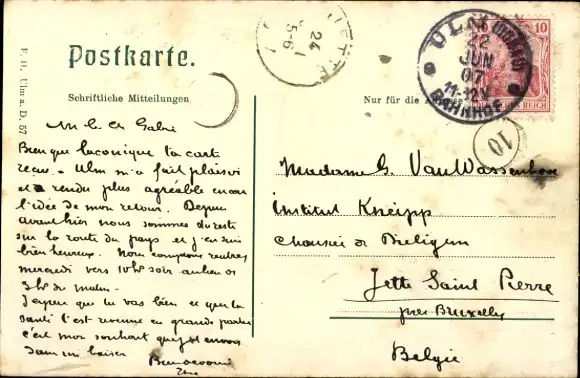 Postkarte.
Schriftliche Mitteilungen
Nur für die
F. H. Ulm a. D. 57
ULM
22
JUN
07
11-12V
BAHNHOF
10 10
REICH
JETTE
24
5-6
10
Gabri
Bien que laconique ta carte
recue à Ulm m'a fait plaisir
et rendu plus agréable encore
l'idée de mon retour. Depuis
avant hier nous sommes du reste
sur la route du pays et j'en suis
bien heureux. Nous comptons rentrer
mercredi vers 10h soir au lieu de
3h du matin.
J'espère que tu vas bien et que ta
santé t'est revenue en grande partie
c'est mon souhait que j'envoie
dans un baiser
Madame G. Van Wassenhove
Institut Kneipp
Chaussée de
Jette Saint Pierre
près Bruxelles
Belgie